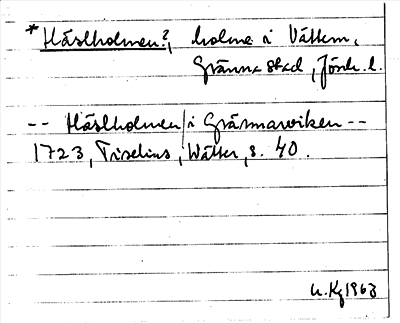 * Håslholmen?, holme i Vättern,
Gränna stad, Jönk. l.
-- Håslholmen/i Gräsmarwiken --
1723, Tiselius, Wätter, s. 40.
U.Kg 1963